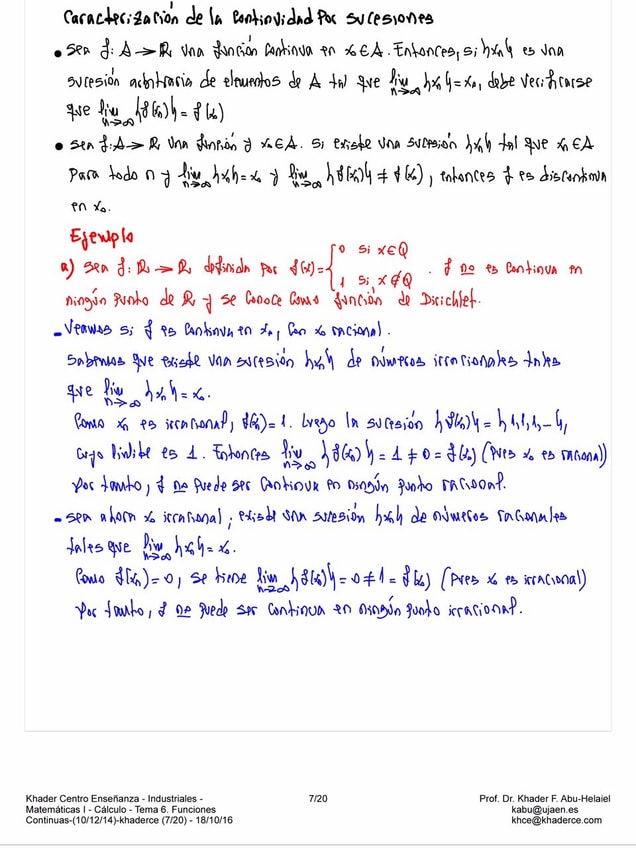 Caracterización de la Continuidad Por sucesiones
• Sea f: A → ℝ una función continua en x₀ ∈ A. Entonces, si {xₙ} es una
sucesión arbitraria de elementos de A tal que lim n→∞ {xₙ} = x₀, debe verificarse
que lim n→∞ {f(xₙ)} = f(x₀)
• Sea f: A → ℝ una función y x₀ ∈ A. Si existe una sucesión {xₙ} tal que xₙ ∈ A
Para todo n y lim n→∞ {xₙ} = x₀ y lim n→∞ {f(xₙ)} ≠ f(x₀), entonces f es discontinua
en x₀.
Ejemplo
a) Sea f: ℝ → ℝ definida por f(x) = { 0 si x ∈ Q
1 si x ∉ Q . f no es continua en
ningún punto de ℝ y se conoce como función de Dirichlet.
- Veamos si f es continua en x₀, con x₀ racional.
Sabemos que existe una sucesión {xₙ} de números irracionales tales
que lim n→∞ {xₙ} = x₀.
Como xₙ es irracional, f(xₙ) = 1. Luego la sucesión {f(xₙ)} = {1, 1, 1, -- },
cuyo límite es 1. Entonces lim n→∞ {f(xₙ)} = 1 ≠ 0 = f(x₀) (Pues x₀ es racional)
Por tanto, f no puede ser continua en ningún punto racional.
- Sea ahora x₀ irracional; existe una sucesión {xₙ} de números racionales
tales que lim n→∞ {xₙ} = x₀.
Como f(xₙ) = 0, se tiene lim n→∞ {f(xₙ)} = 0 ≠ 1 = f(x₀) (Pues x₀ es irracional)
Por tanto, f no puede ser continua en ningún punto irracional.
Khader Centro Enseñanza - Industriales -
Matemáticas I - Cálculo - Tema 6. Funciones
Continuas-(10/12/14)-khaderce (7/20) - 18/10/16
7/20
Prof. Dr. Khader F. Abu-Helaiel
kabu@ujaen.es
khce@khaderce.com